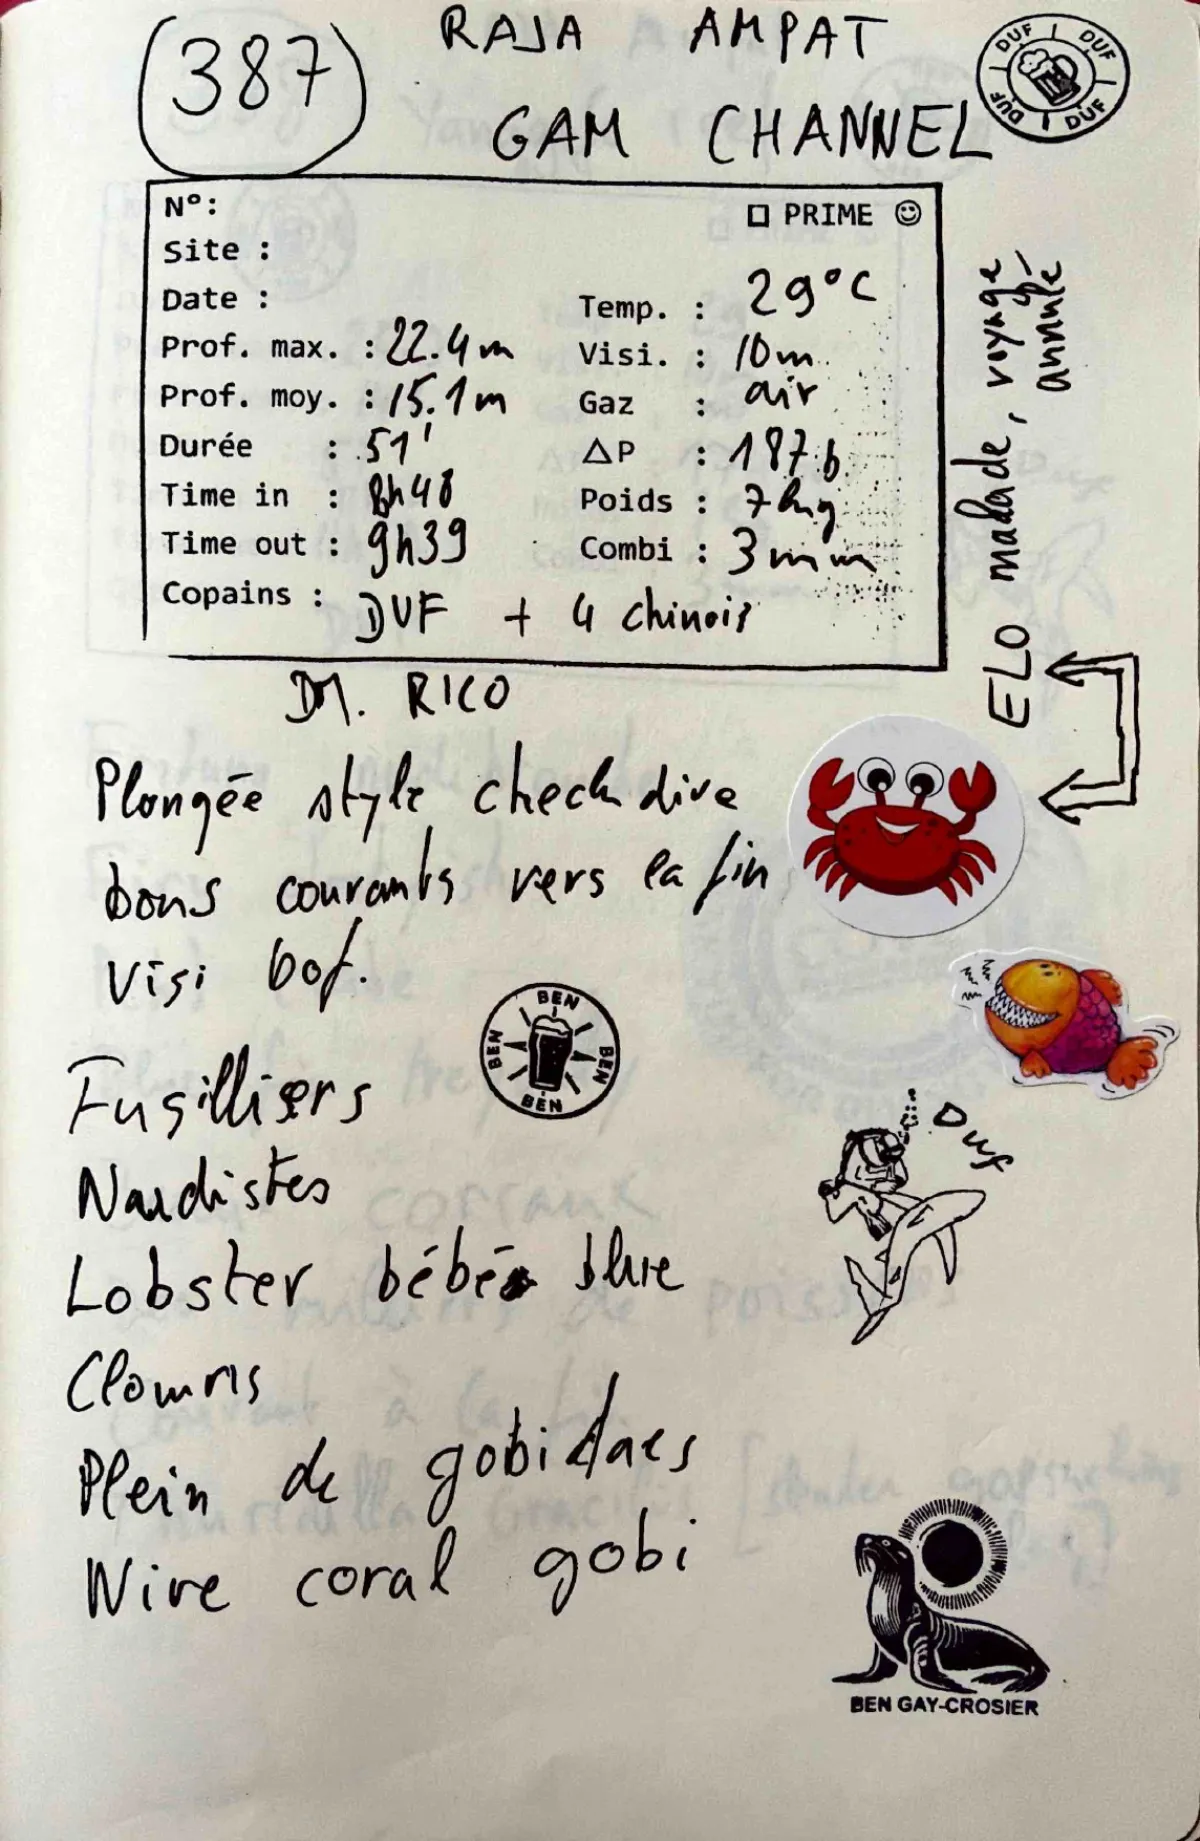 (387)
RAJA AMPAT
GAM CHANNEL
DUF DUF DUF DUF
N°:
☐ PRIME ☺
Site :
Date :
Temp. : 29°C
Prof. max. : 22.4m
Visi. : 10m
Prof. moy. : 15.1m
Gaz : air
Durée : 51'
ΔP : 187b
Time in : 8h48
Poids : 7kg
Time out : 9h39
Combi : 3mm
Copains : DUF + 4 chinois
DM. RICO
ELO malade, voyage
annulé
Plongée style check dive
bons courants vers la fin
Visi bof.
BEN BEN BEN BEN
Fusilliers
Nudistes
Lobster bébé blue
Clowns
Plein de gobidaes
Wire coral gobi
Duf
BEN GAY-CROSIER